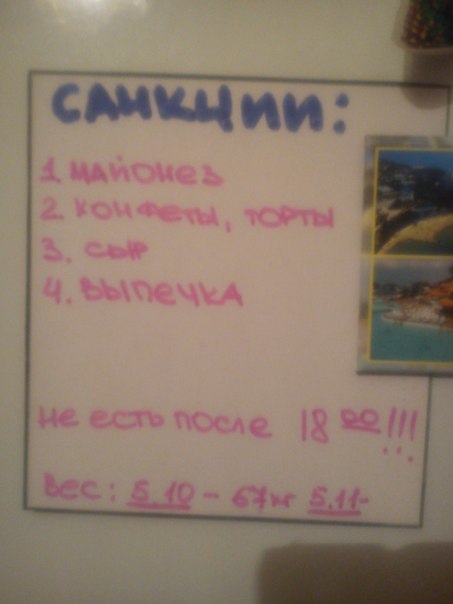 САНКЦИИ:
1. МАЙОНЕЗ
2. КОНФЕТЫ, ТОРТЫ
3. СЫР
4. ВЫПЕЧКА
НЕ ЕСТЬ ПОСЛЕ 18 00 !!!
ВЕС: 5.10 – 67кг 5.11-